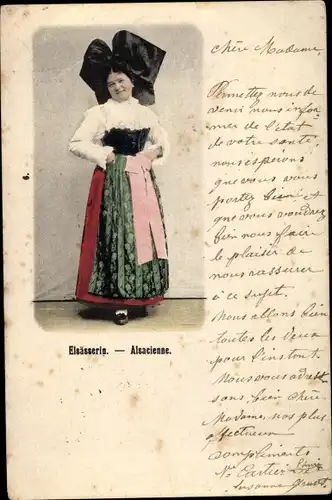 Elsässerin. — Alsacienne.
Chère Madame,
Permettez nous de
venir nous infor
mer de l'état
de votre santé,
nous espérons
que vous vous
portez bien et
que vous voudrez
bien nous faire
le plaisir de
nous rassurer
à ce sujet.
Nous allons bien
toutes les deux
pour l'instant.
Nous vous adres
sons, bien chère
Madame, nos plus
affectueux
compliments
Cartier
Suzanne